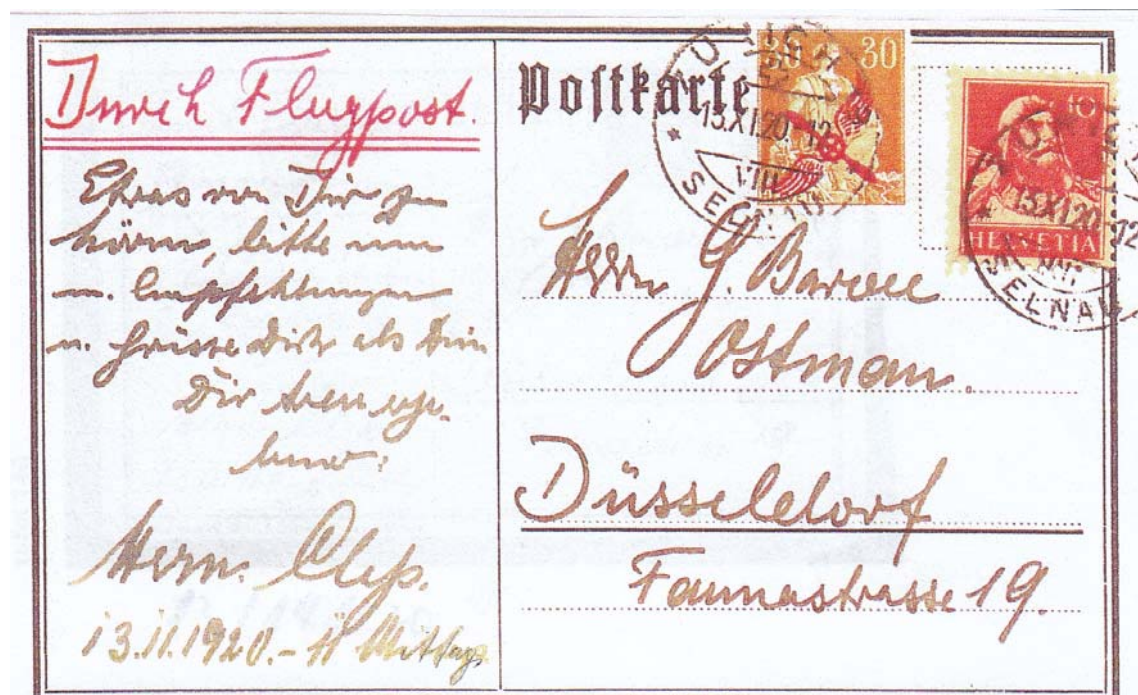 Durch Flugpost.
Etwas von Dir zu
hören, bitte um
m. Empfehlungen
u. grüsse Dich als Dein
Dir treu erge-
bener:
Herm.
13.11.1920. - 11 Mittags.
Postkarte
30 30
13.XI.20 - 12
VIII
SELNAU
10
13.XI.20 - 12
HELVETIA
SELNAU
Herrn G.
Ostman.
Düsseldorf
Faunastrasse 19.